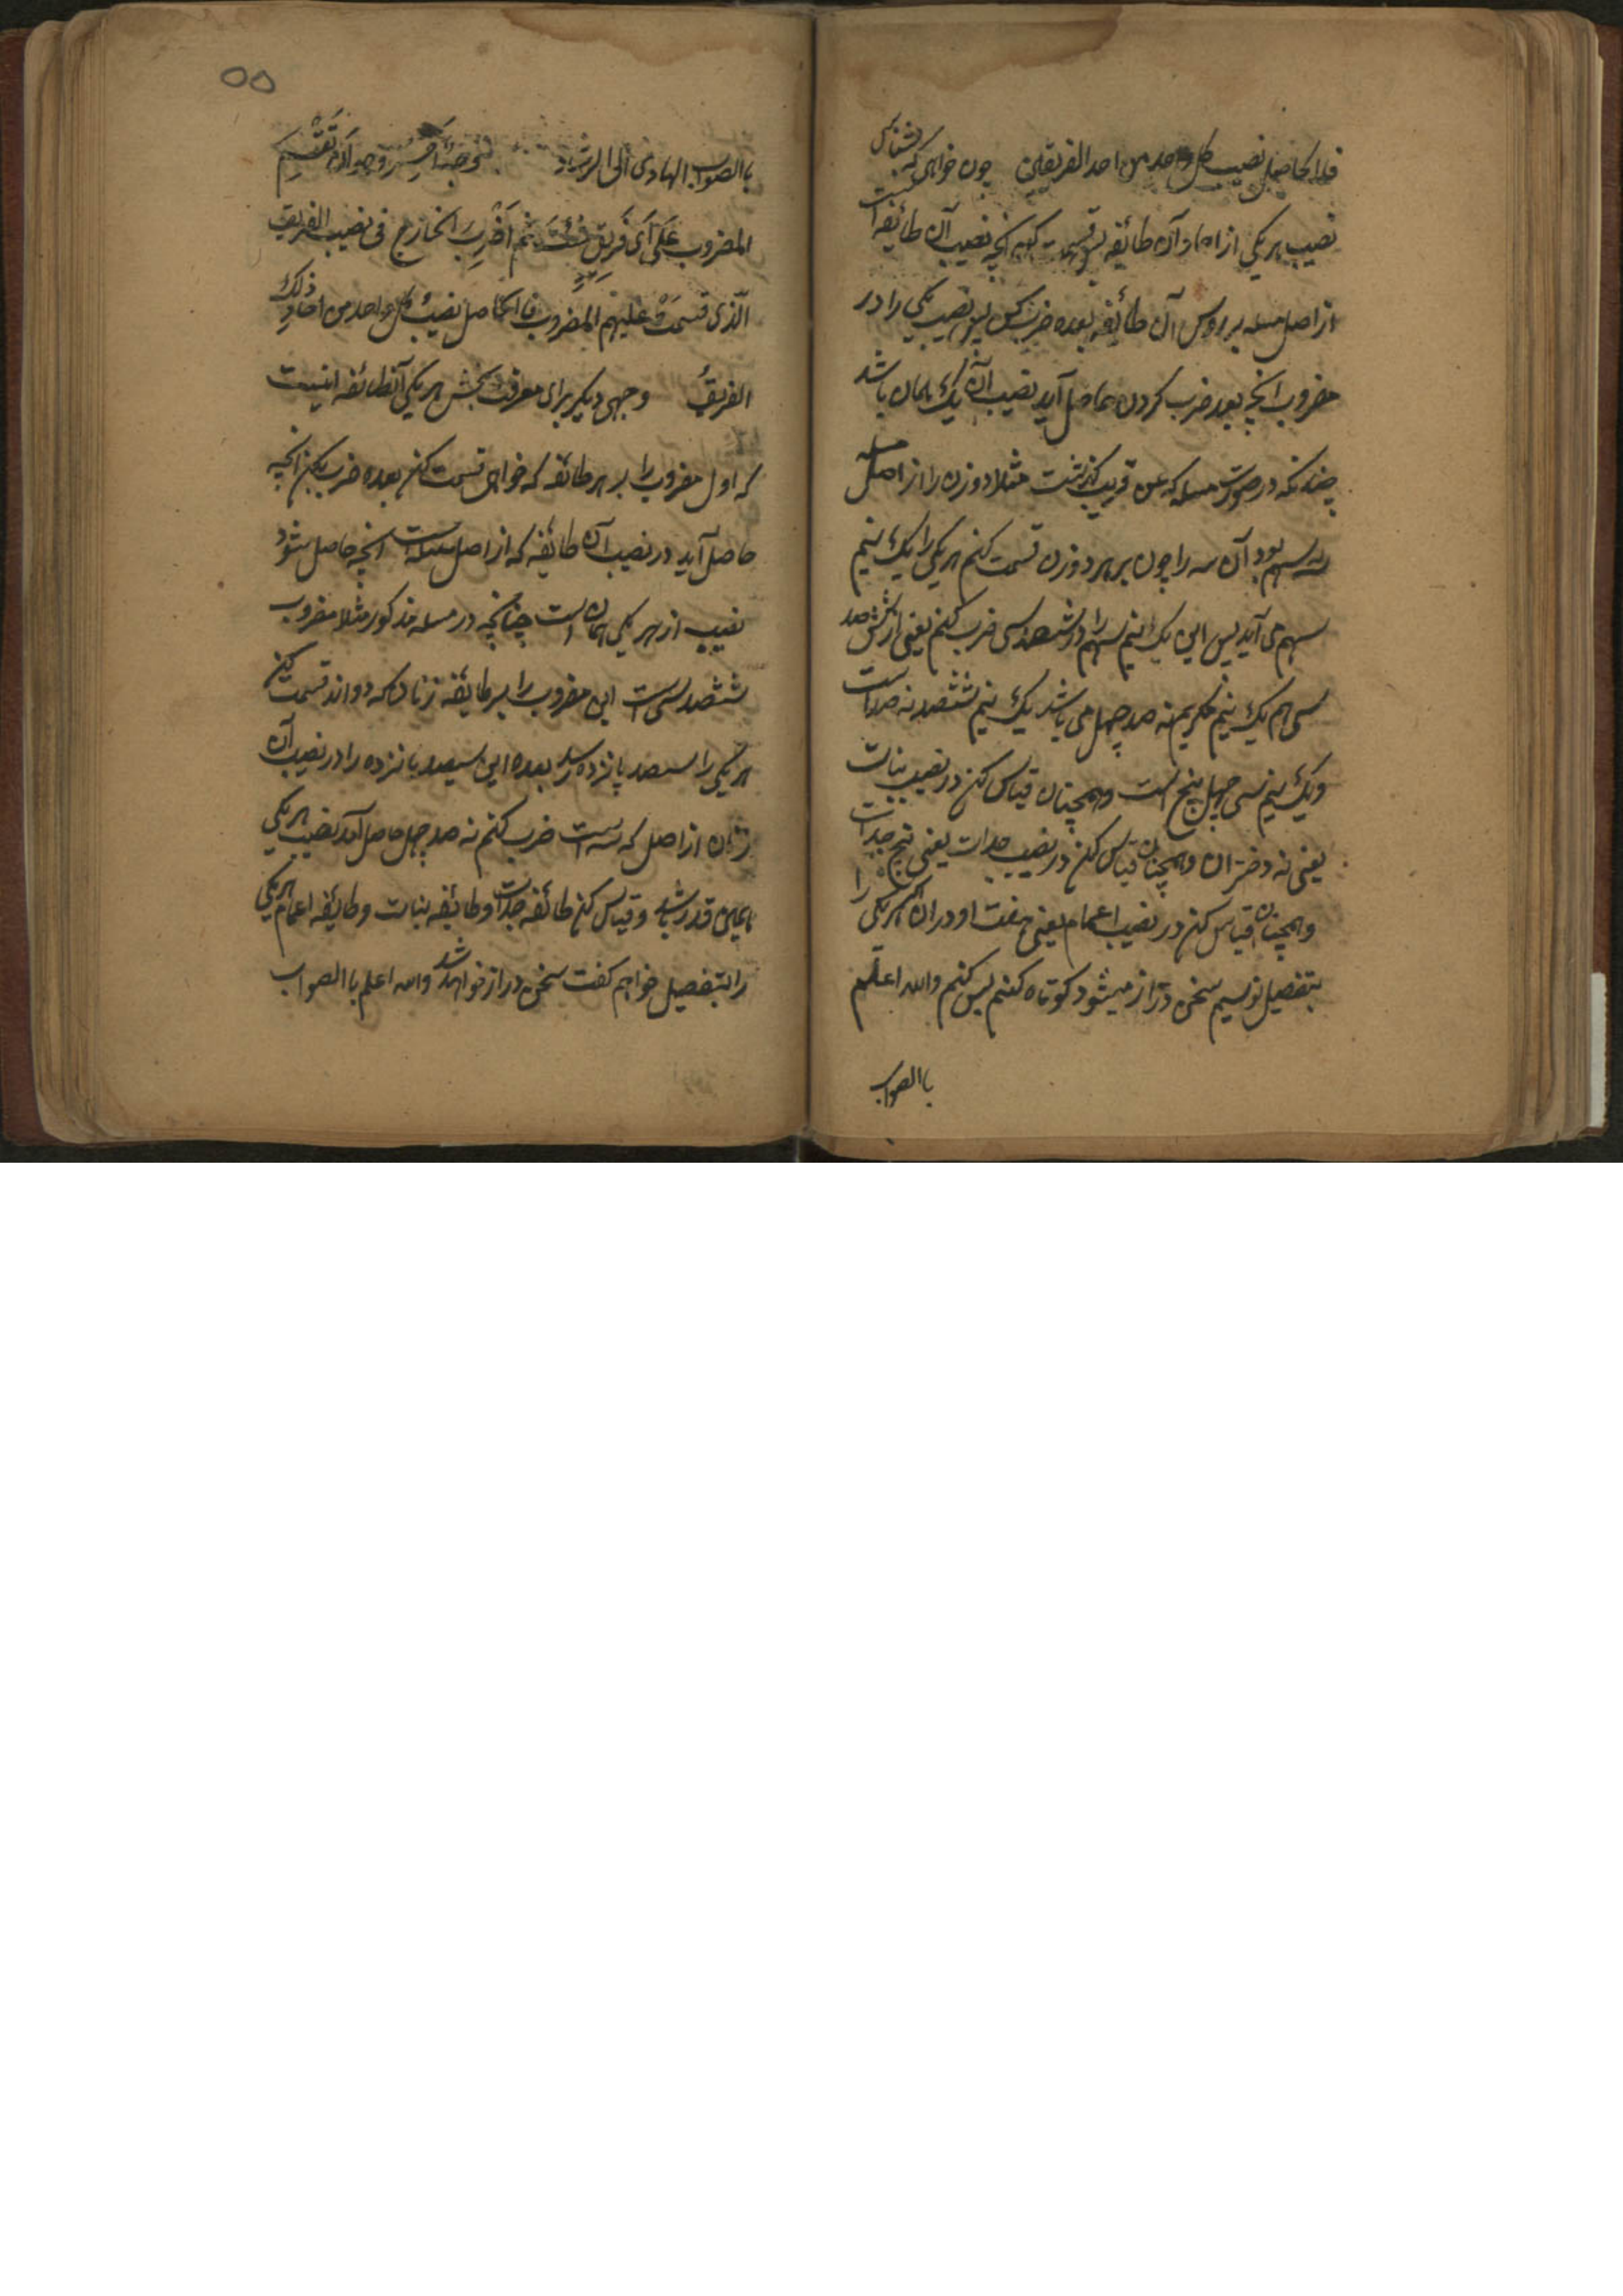 فالحاصل نصیب کل واحد من احد الفریقین چون خواهی که بشناسی
نصیب هر یکی از احاد آن طائفه پس قسمت کن انچه نصیب آن طائفه است
از اصل مسله بر روس آن طائفه بعده ضرب کن پس نصیب یکی را در
مضروب انچه بعد ضرب کردن حاصل آید نصیب آن یک همان باشد
چنانکه در صورت مسله که عن قریب گذشت مثلا دو زن را از اصل مسله
سه سهم بود آن سه را چون بر هر دو زن قسمت کنم هر یکی را یک نیم
سهم می آید پس این یک نیم سهم را در ششصد سی ضرب کنم یعنی از شش صد
سی هم یک نیم مکریم نه صد چهل می باشد یک نیم ششصد نه صد است
و یک نیم سی چهل پنج است و همچنان قیاس کن در نصیب بنات
یعنی نه دختران و همچنان قیاس کن در نصیب جدات یعنی پنج جدات
و همچنان قیاس کن در نصیب اعمام یعنی هفت اودران اگر هر یکی را
بتفصیل نویسیم سخن دراز میشود کوتاه کنم پس کنم والله اعلم
باالصواب
۵۵
باالصواب الهادی الی الرشاد وجه اخر وهو ان تقسیم
المضروب علی ای فریق شئت ثم اضرب الخارج فی نصیب الفریق
الذی قسمت علیهم المضروب فاالحاصل نصیب کل واحد من احاد ذلک
الفریق وجهی دیکر برای معرفت بخش هر یکی آنطائفه اینست
که اول مضروب را بر هر طائفه که خواهی قسمت کنی بعده ضرب بکن انچه
حاصل آید در نصیب آن طائفه که از اصل مسله است انچه حاصل شود
نصیب از هر یکی همان است چنانچه در مسله مذکور مثلا مضروب
ششصد سی است این مضروب را بر طایفه زنان که دو اند قسمت کن
هر یکی را سیصد پانزده رسد بعده این سیصد پانزده را در نصیب آن
زنان از اصل که سه است ضرب کنم نه صد چهل حاصل آمد نصیب هر یکی
باین قدر باشد و قیاس کن طائفه جدات و طائفه بنات و طایفه اعمام هر یکی
را بتفصیل خواهم کفت سخن دراز خواهد شد والله اعلم باالصواب